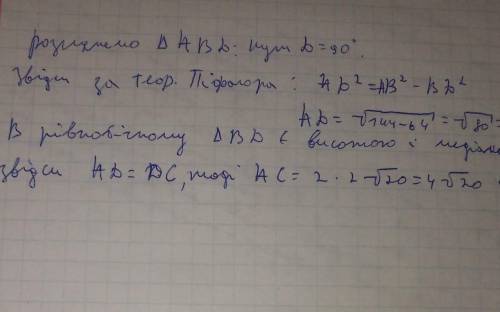 розглянемо Δ ABD: кут D = 90°.
Звідси за теор. Піфагора: AD² = AB² - BD²
AD = √144-64 = √80 =
В рівнобічному Δ BD є висотою і медіаною
звідси AD = DC, тоді AC = 2 · 2√20 = 4√20